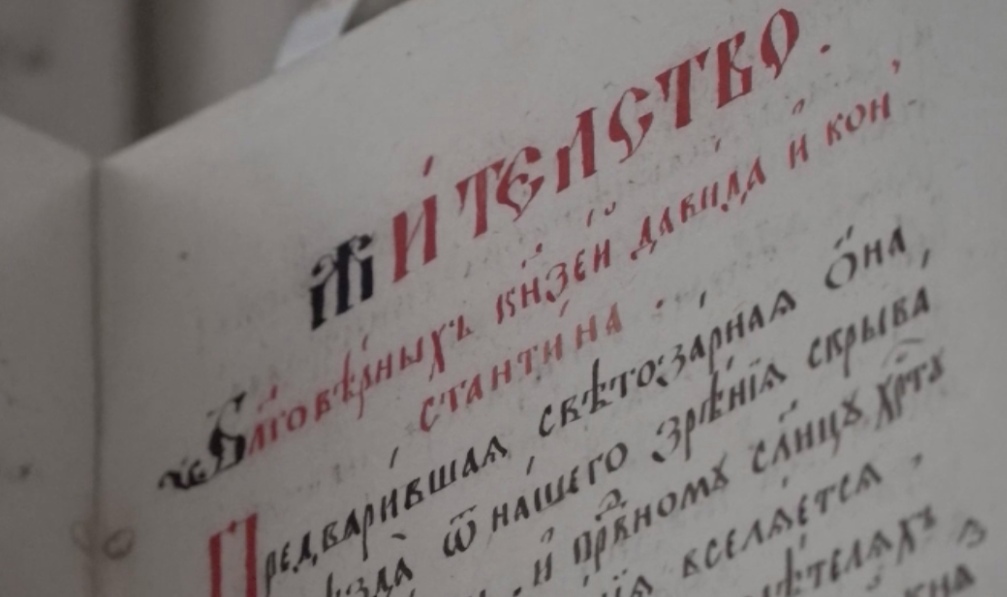 Жи́телство.
Благовѣрныхъ кнѧзей давида и кон
стантина.
Предварившаѧ свѣтозарнаѧ ѻна,
ѿ нашего зрѣнїѧ скрыва
и прⷣвномꙋ слнцꙋ хрⷭтꙋ
вселѧетсѧ,